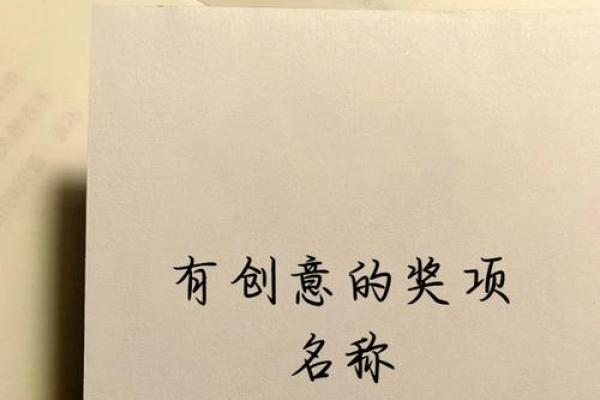 有创意的奖项
名称